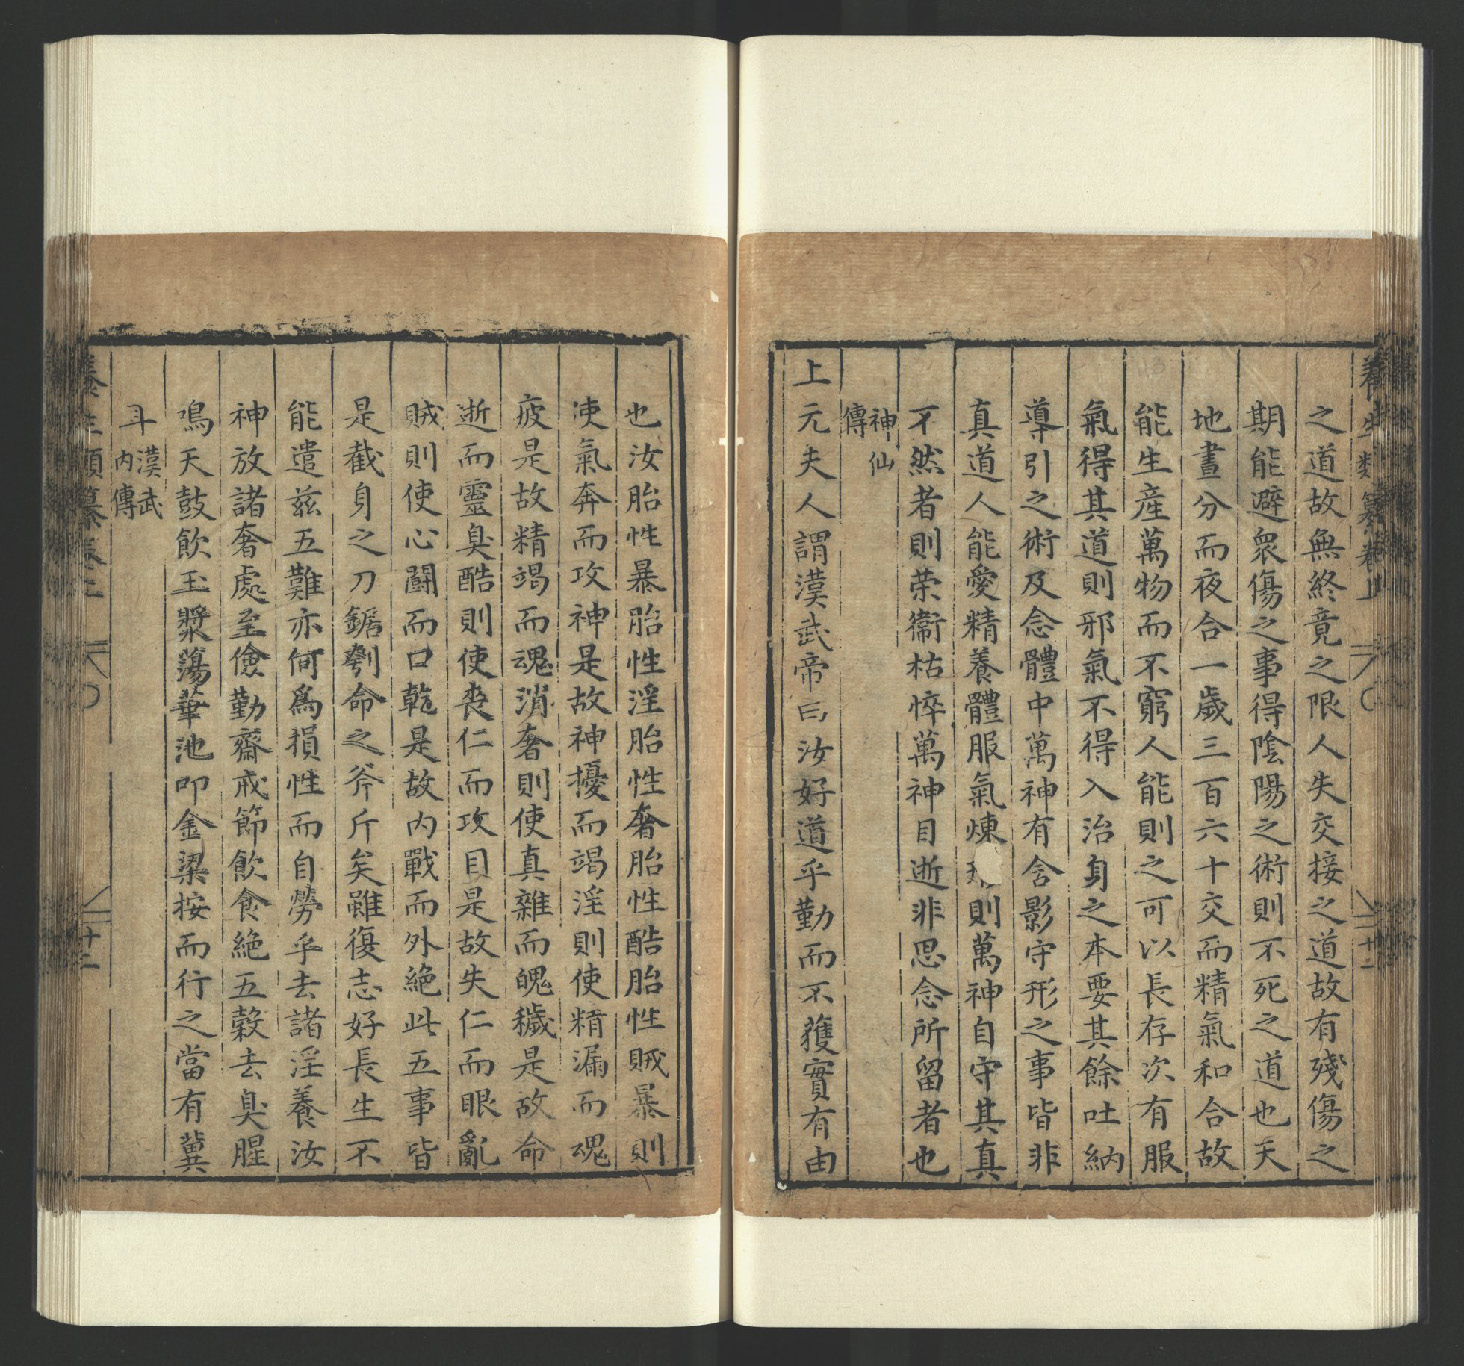 養生類纂卷上
之道故無終竟之限人失交接之道故有殘傷之
期能避衆傷之事得陰陽之術則不死之道也天
地晝分而夜合一歲三百六十交而精氣和合故
能生産萬物而不窮人能則之可以長存次有服
氣得其道則邪氣不得入治身之本要其餘吐納
導引之術及念體中萬神有含影守形之事皆非
真道人能愛精養體服氣煉形則萬神自守其真
不然者則荣衞枯悴萬神目逝非思念所留者也
神仙
傳
上元夫人謂漢武帝曰汝好道乎勤而不獲實有由
也汝胎性暴胎性淫胎性奢胎性酷胎性賊暴則
使氣奔而攻神是故神擾而竭淫則使精漏而魂
疲是故精竭而魂消奢則使真離而魄穢是故命
逝而靈臭酷則使喪仁而攻目是故失仁而眼亂
賊則使心鬭而口乾是故内戰而外絶此五事皆
是截身之刀鋸刳命之斧斤矣雖復志好長生不
能遣兹五難亦何為損性而自勞乎去諸淫養汝
神放諸奢處至儉勤齋戒節飲食絶五穀去臭腥
鳴天鼓飲玉漿蕩華池叩金梁按而行之當有冀
斗漢武
内傳
養生類纂卷上